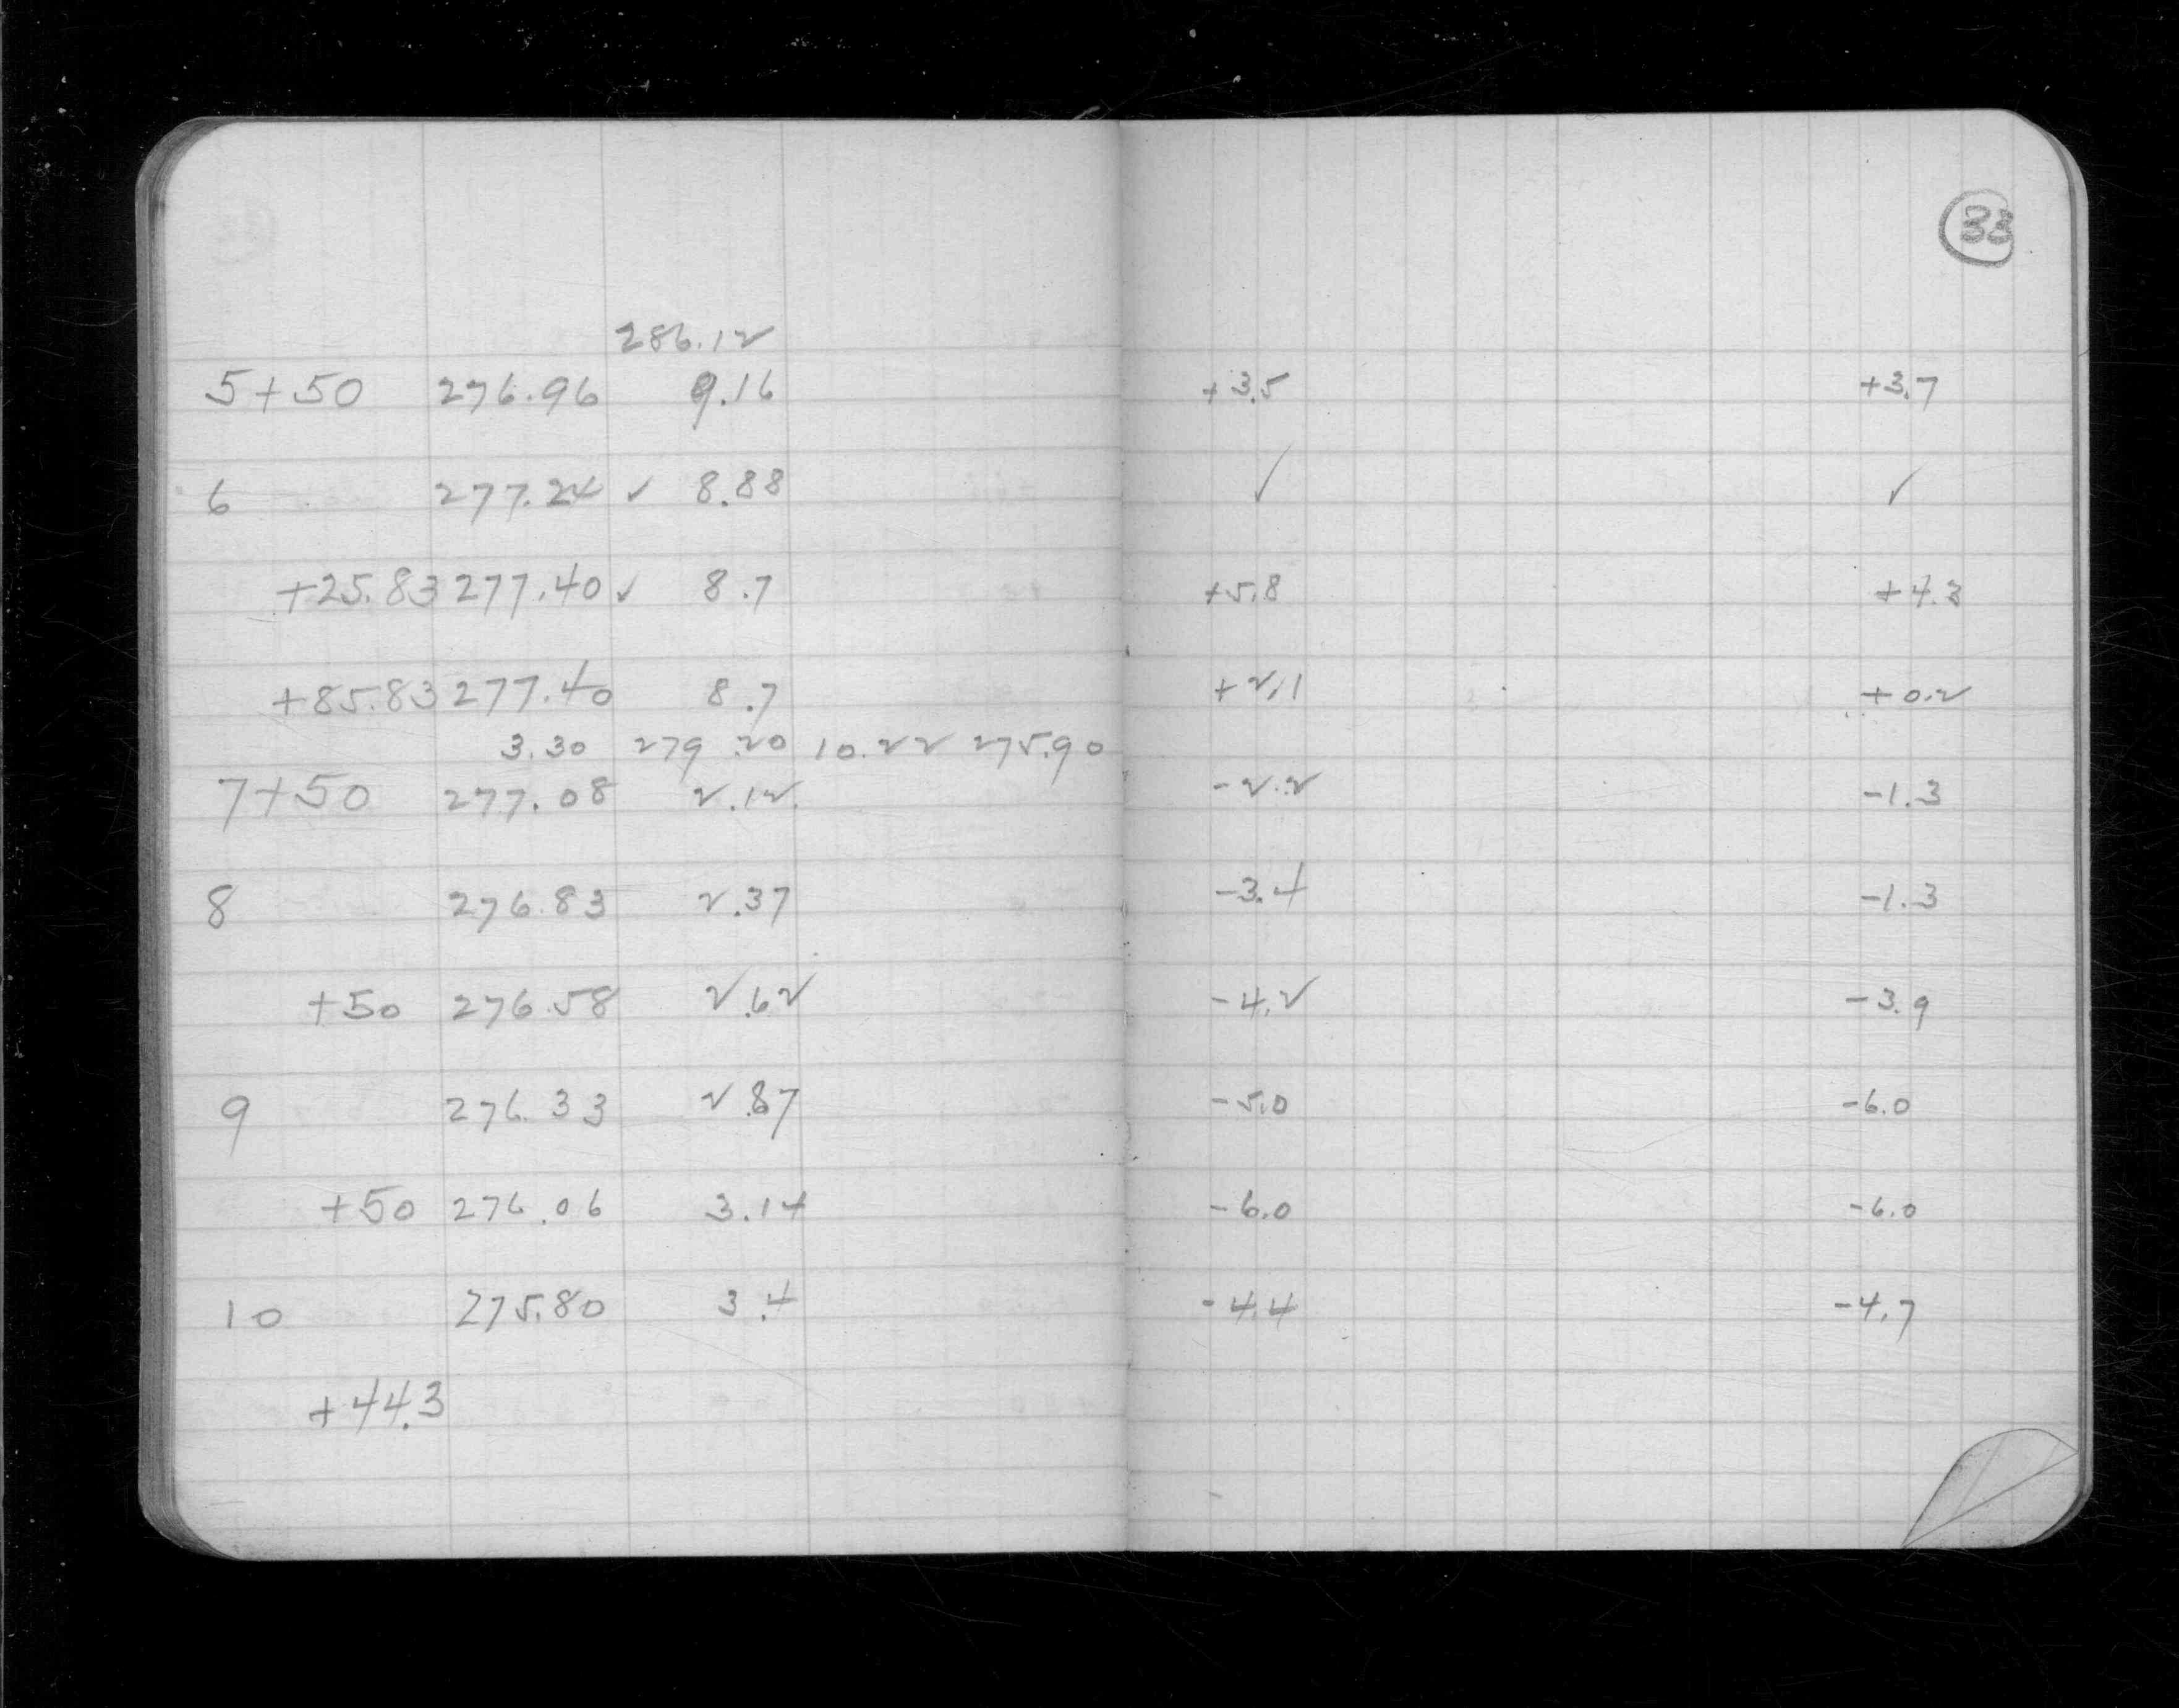 33
286.12
5+50 276.96 9.16 +3.5 +3.7
6 277.24 ✓ 8.88 ✓ ✓
+25.83 277.40 ✓ 8.7 +5.8 +4.3
+85.83 277.40 8.7 +2.1 +0.2
3.30 279.20 10.22 275.90
7+50 277.08 2.12 -2.2 -1.3
8 276.83 2.37 -3.4 -1.3
+50 276.58 2.62 -4.2 -3.9
9 276.33 2.87 -5.0 -6.0
+50 276.06 3.14 -6.0 -6.0
10 275.80 3.4 -4.4 -4.7
+44.3